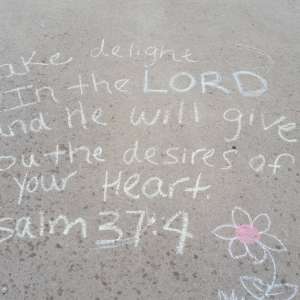 ake delight
In the LORD
and He will give
ou the desires of
your Heart.
salm 37:4